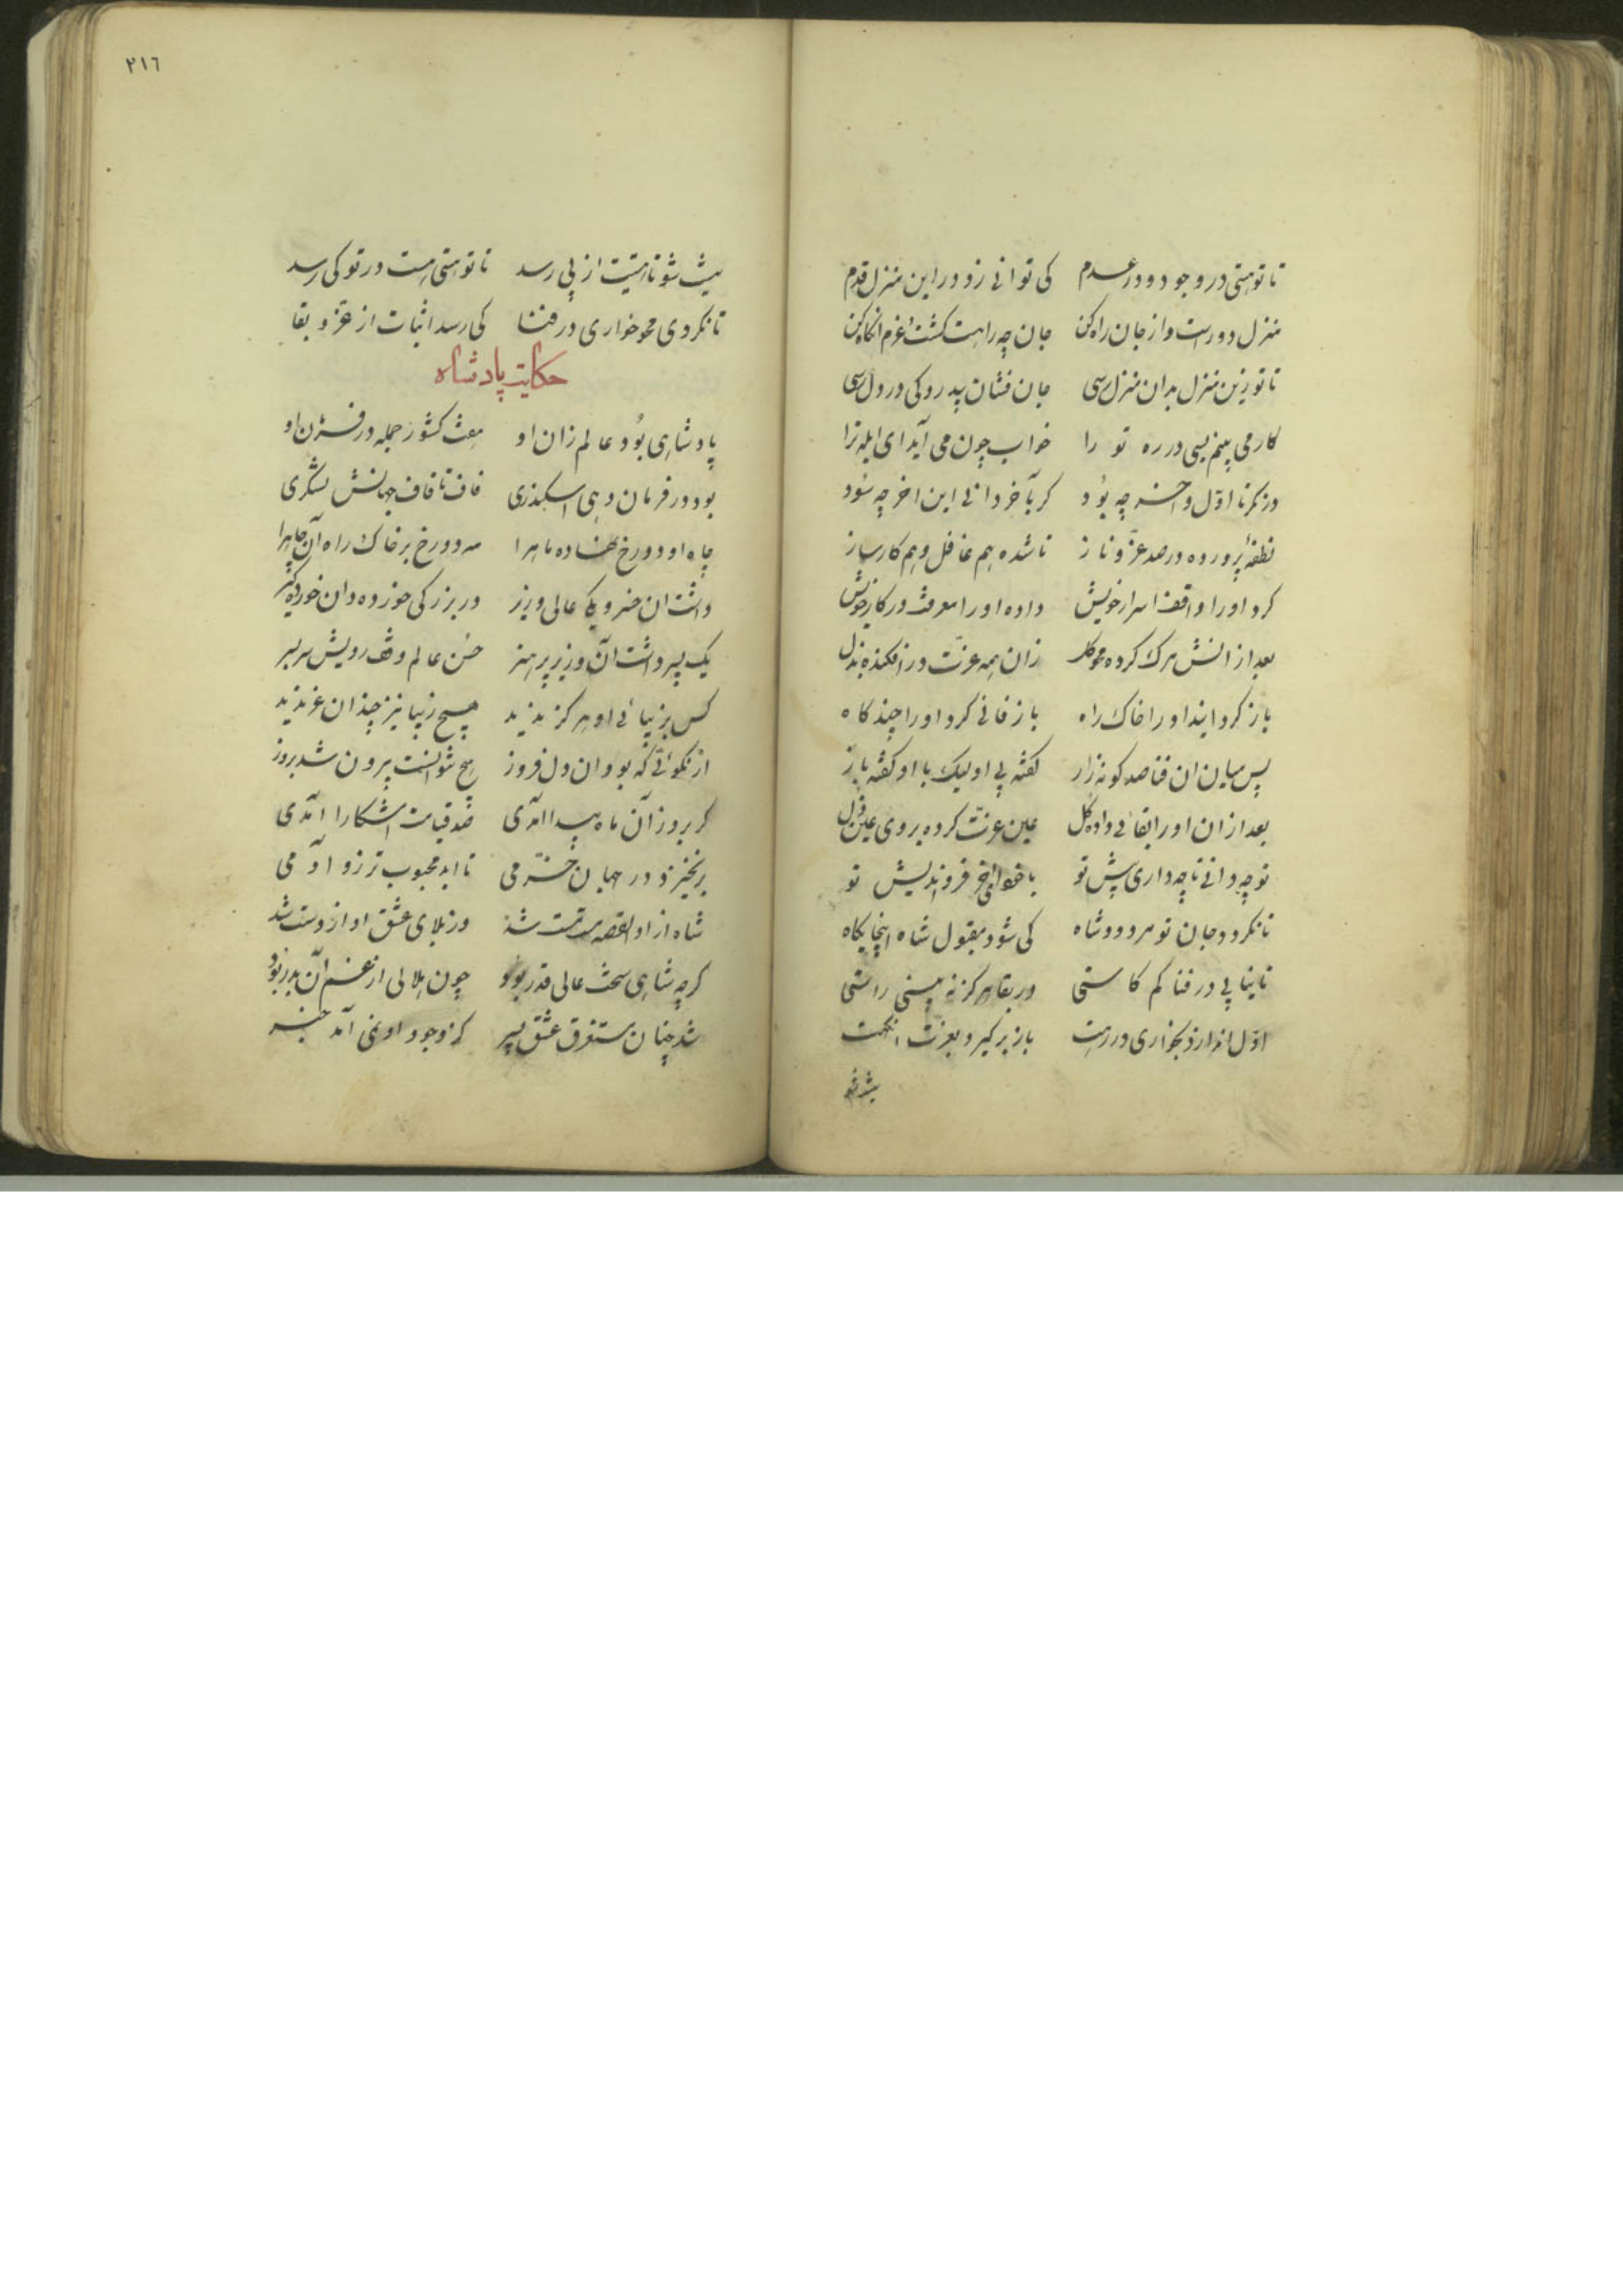 تا تو هستی در وجود و در عدم کی توانی زد در این منزل قدم
منزل دورست و از جان راه کن جان چه راهت کشت عزم
تا تو زین منزل بدان منزل رسی جان فشان
کار می بینم بسی در ره تو را خواب چون می آید ای ابله ترا
در نکر تا اول و اخر چه بود کر بآخر دانی این اخر چه سود
نطفه پرورده در صد عز و ناز تا شده هم عاقل و هم کارساز
کرد او را واقف اسرار خویش داده او را معرفت در کار خویش
بعد از انش مرک کرده محو کل زان همه عزت در افکنده بذل
باز کردانید او را خاک راه باز فانی کرد او را چند کاه
پس میان ان فنا صد کونه راز کفته بی او لیک با او کفته باز
بعد ازان او را بقائی داده کل عین عزت کرده بر وی عین ذل
تو چه دانی تا چه داری پیش تو با خود ای آخر فرو اندیش تو
تا نکردد جان تو مردود شاه کی شود مقبول شاه اینجایکاه
تا نیابی در فنا کم کاستی در بقا هرکز نه بینی راستی
اول اندازد بخواری در رهت باز برکیرد بعزت
نیست شو
٢١٦
نیست شو تا هستیت از پی رسد تا تو هستی هست در تو کی رسد
تا نکردی محو خواری در فنا کی رسد اثبات از عز و بقا
حکایت پادشاه
پادشاهی بود عالم زان او هفت کشور جمله در فرمان او
بود در فرمان دهی اسکندری قاف تا قاف جهانش لشکری
جاه او دو رخ نهاده ماه را مه دو رخ بر خاک راه آن جاه را
داشت ان خسرو یکی عالی وزیر در بزرکی خورده دان خورده کیر
یک پسر داشت آن وزیر پر هنر حسن عالم وقف رویش سر بسر
کس بزیبائی او هرکز ندید هیچ زیبا نیز چندان عز ندید
از نکوئی که بود ان دل فروز هیچ نتوانست بیرون شد بروز
کر بروز آن ماه پیدا آمدی صد قیامت اشکارا آمدی
برنخیزد در جهان خرمی تا ابد محبوب تر زو آدمی
شاه از او القصه مست مست شد وز بلای عشق او از دست شد
کرچه شاهی سخت عالی قدر بود چون هلالی از غم آن بدر بود
شد چنان مستغرق عشق پسر کز وجود او نمی آمد خبر